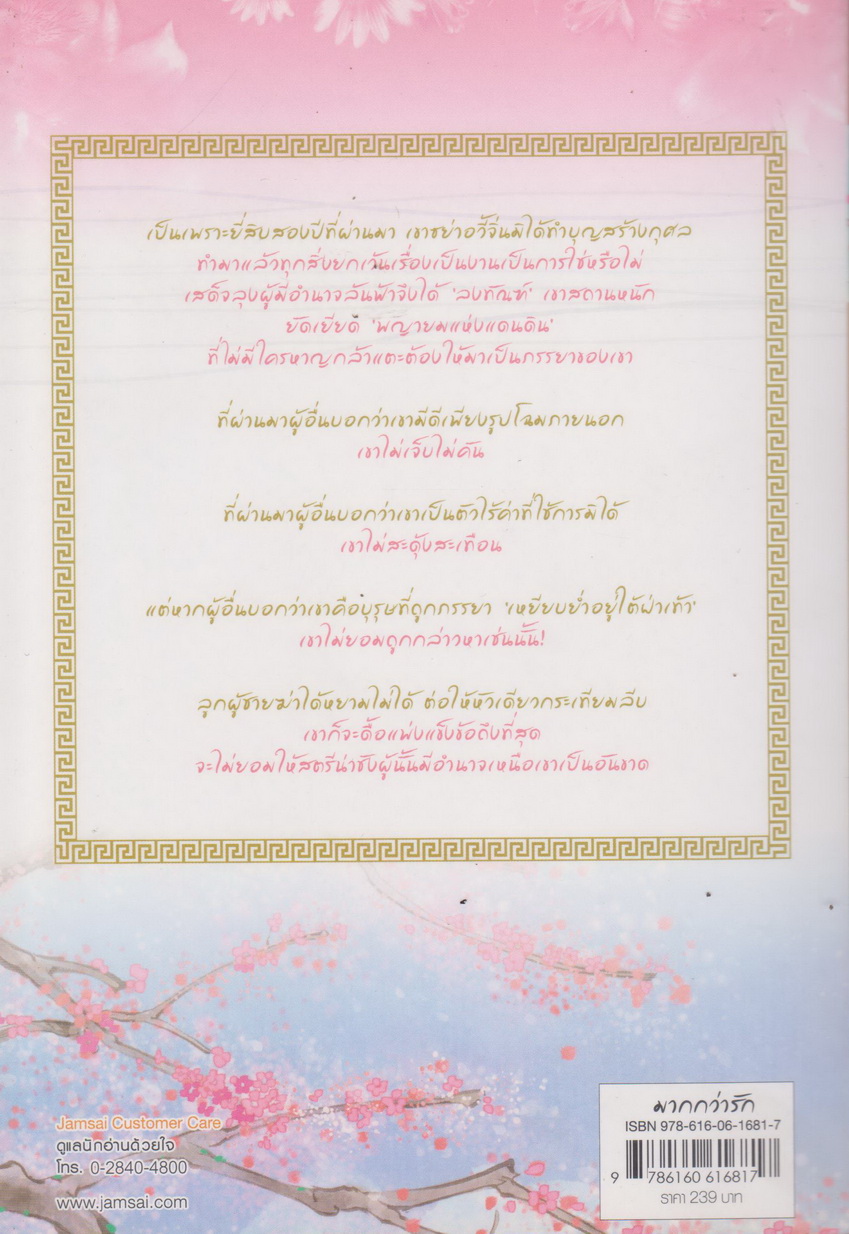 เป็นเพราะยี่สิบสองปีที่ผ่านมา เขาซย่าอวี้จิ่นมิได้ทำบุญสร้างกุศล
ทำมาแล้วทุกสิ่งยกเว้นเรื่องเป็นงานเป็นการใช่หรือไม่
เสด็จลุงผู้มีอำนาจล้นฟ้าจึงได้ 'ลงทัณฑ์' เขาสถานหนัก
ยัดเยียด 'พญายมแห่งแดนดิน'
ที่ไม่มีใครหาญกล้าแตะต้องให้มาเป็นภรรยาของเขา
ที่ผ่านมาผู้อื่นบอกว่าเขามีดีเพียงรูปโฉมภายนอก
เขาไม่เจ็บไม่คัน
ที่ผ่านมาผู้อื่นบอกว่าเขาเป็นตัวไร้ค่าที่ใช้การมิได้
เขาไม่สะดุ้งสะเทือน
แต่หากผู้อื่นบอกว่าเขาคือบุรุษที่ถูกภรรยา 'เหยียบย่ำอยู่ใต้ฝ่าเท้า'
เขาไม่ยอมถูกกล่าวหาเช่นนั้น!
ลูกผู้ชายฆ่าได้หยามไม่ได้ ต่อให้หัวเดียวกระเทียมลีบ
เขาก็จะดื้อแพ่งแข็งข้อถึงที่สุด
จะไม่ยอมให้สตรีน่าชังผู้นั้นมีอำนาจเหนือเขาเป็นอันขาด
Jamsai Customer Care
ดูแลนักอ่านด้วยใจ
โทร. 0-2840-4800
www.jamsai.com
มากกว่ารัก
ISBN 978-616-06-1681-7
9 786160 616817
ราคา 239 บาท